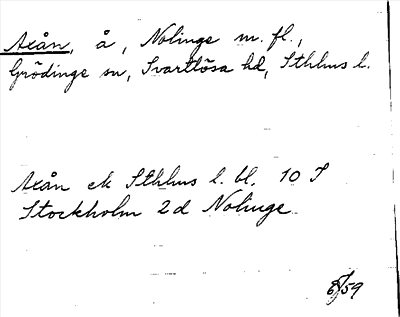 Axån, å, Nolinge m. fl.,
Grödinge sn, Svartlösa hd, Sthlms l.
Axån ek Sthlms l. bl. 10 S
Stockholm 2d Nolinge
/59